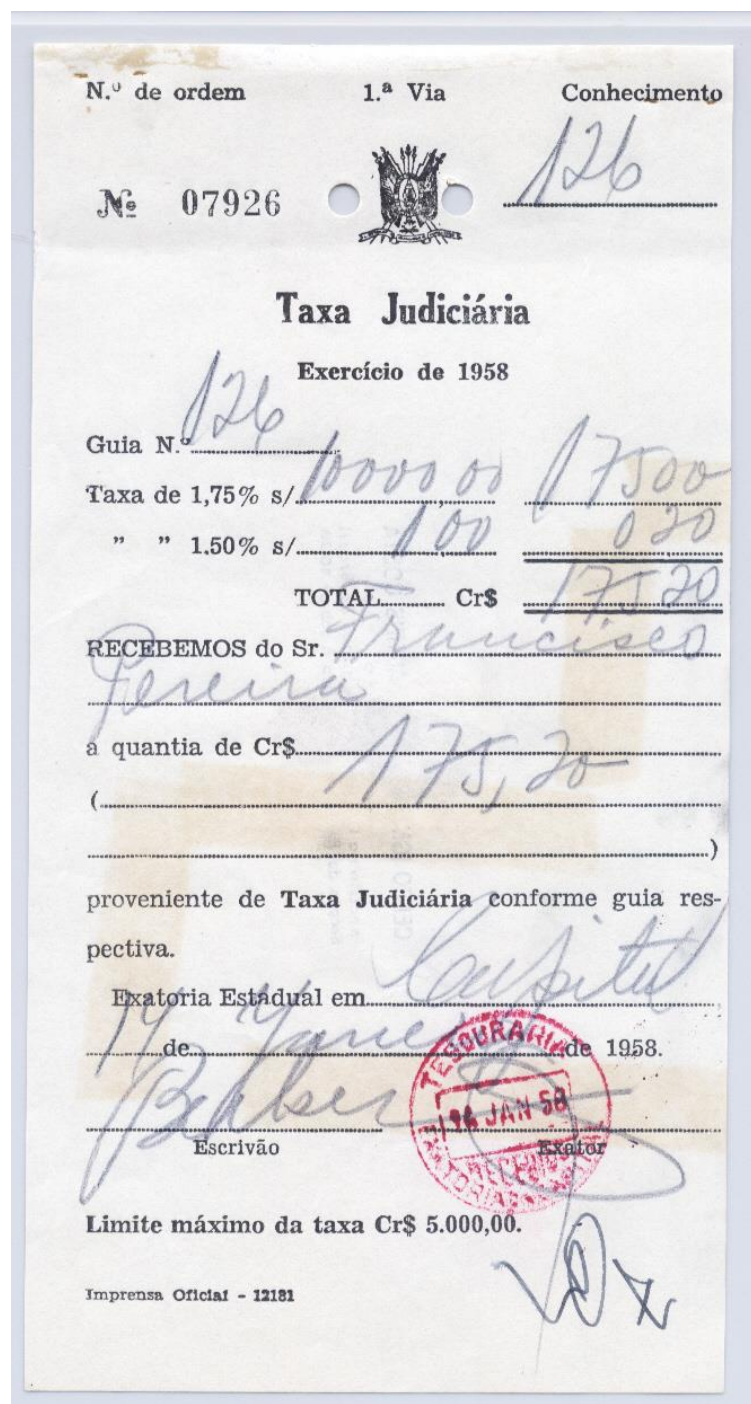 N.º de ordem 1.ª Via Conhecimento
126
Nº 07926
Taxa Judiciária
Exercício de 1958
Guia N.º 126
Taxa de 1,75% s/ 10000,00 17500
" " 1.50% s/ 100 020
TOTAL Cr$ 17520
RECEBEMOS do Sr. Francisco
Pereira
a quantia de Cr$ 175,20
(
)
proveniente de Taxa Judiciária conforme guia res-
pectiva.
Exatoria Estadual em Capital
14 de Janeiro de 1958.
TESOURARIA
14 JAN 58
Escrivão Exator
Limite máximo da taxa Cr$ 5.000,00.
Imprensa Oficial - 12181